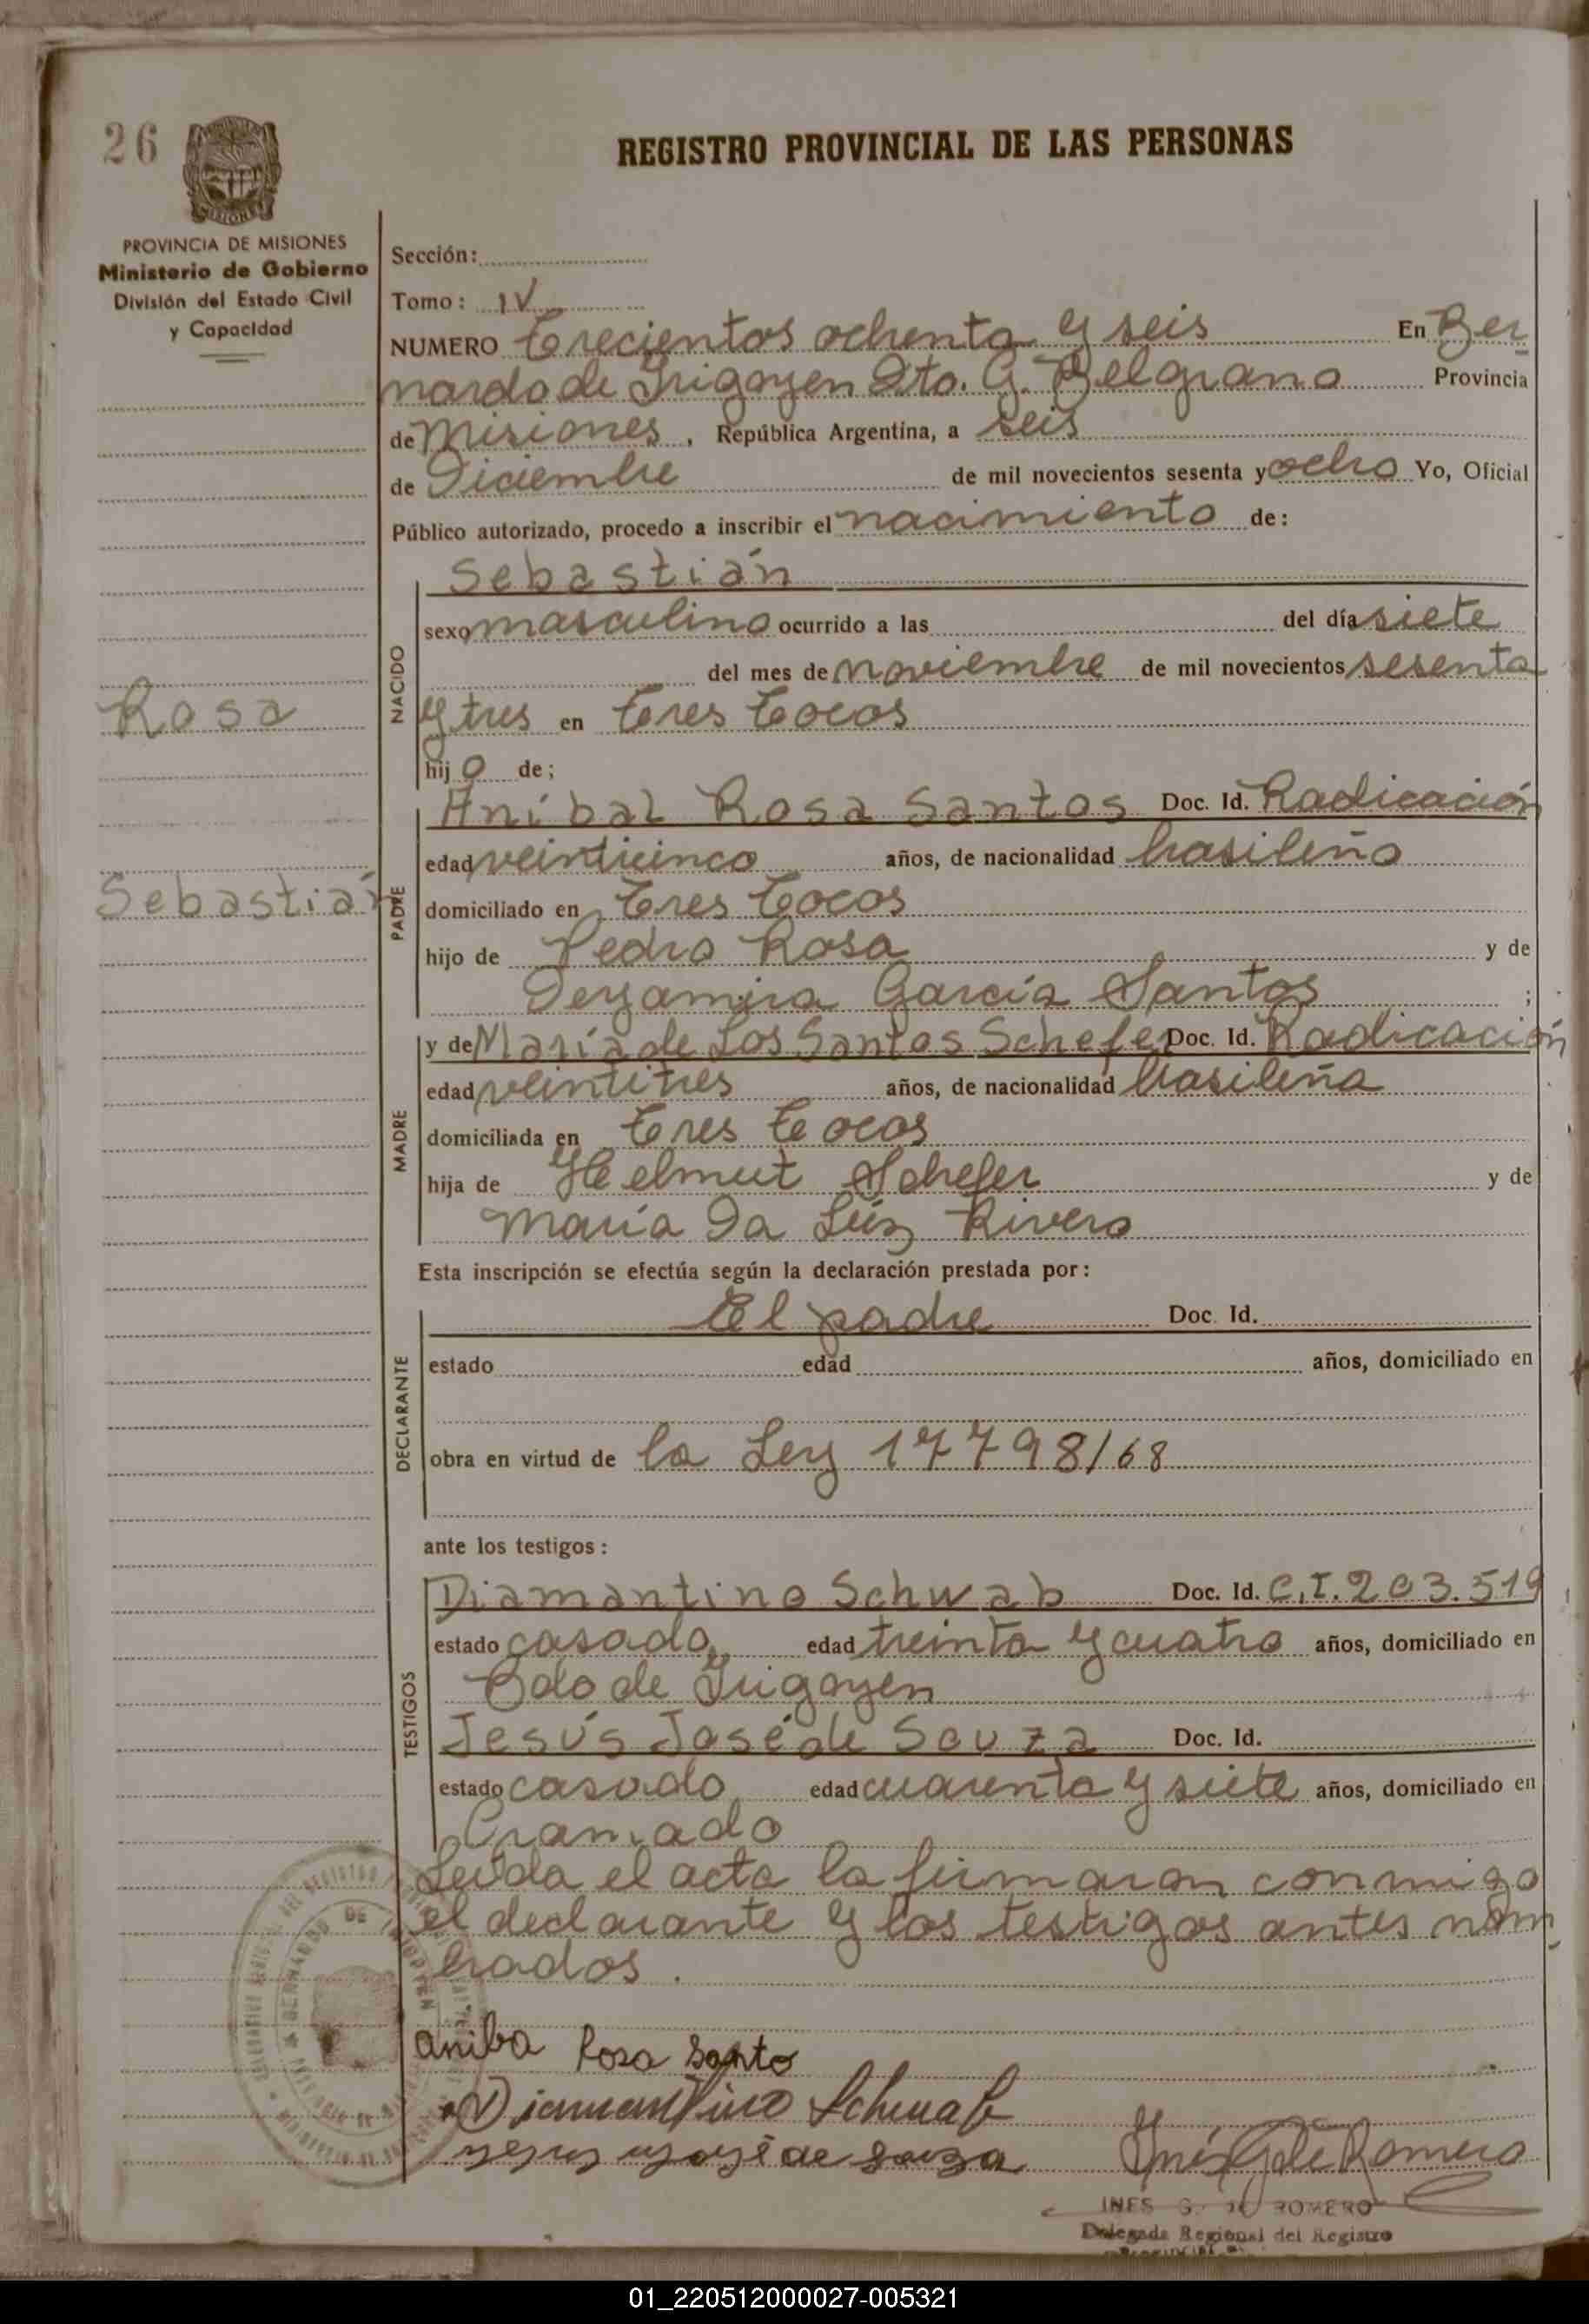 26
REGISTRO PROVINCIAL DE LAS PERSONAS
PROVINCIA DE MISIONES
Ministerio de Gobierno
División del Estado Civil
y Capacidad
Sección:
Tomo: IV
NUMERO Trecientos ochenta y seis En Ber
nardo de Irigoyen Dto. G. Belgrano Provincia
de Misiones, República Argentina, a seis
de Diciembre de mil novecientos sesenta y ocho Yo, Oficial
Público autorizado, procedo a inscribir el nacimiento de:
Sebastián
NACIDO
sexo masculino ocurrido a las del día siete
del mes de noviembre de mil novecientos sesenta
y tres en Tres Tocos
hijo de;
Rosa
Sebastián
Aníbal Rosa Santos Doc. Id. Radicación
PADRE
edad veinticinco años, de nacionalidad brasileño
domiciliado en Tres Tocos
hijo de Pedro Rosa y de
García Santos ;
y de María de Los Santos Schefer Doc. Id. Radicación
MADRE
edad veintitres años, de nacionalidad brasileña
domiciliada en Tres Tocos
hija de Helmut Schefer y de
María Da Lúz Rivero
Esta inscripción se efectúa según la declaración prestada por:
El padre Doc. Id.
DECLARANTE
estado edad años, domiciliado en
obra en virtud de la Ley 17798/68
ante los testigos:
Diamantino Schwab Doc. Id. C.I. 203.519
TESTIGOS
estado casado, edad treinta y cuatro años, domiciliado en
Bdo de Irigoyen
Jesús José de Souza Doc. Id.
estado casado, edad cuarenta y siete años, domiciliado en
Gramado
Leída el acta la firmaran conmigo
el declarante y los testigos antes nom
brados.
aniba Rosa Santo
Diamantino Schwab
José de Souza
Inés G de Romero
INES G. DE ROMERO
Delegada Regional del Registro
01_220512000027-005321